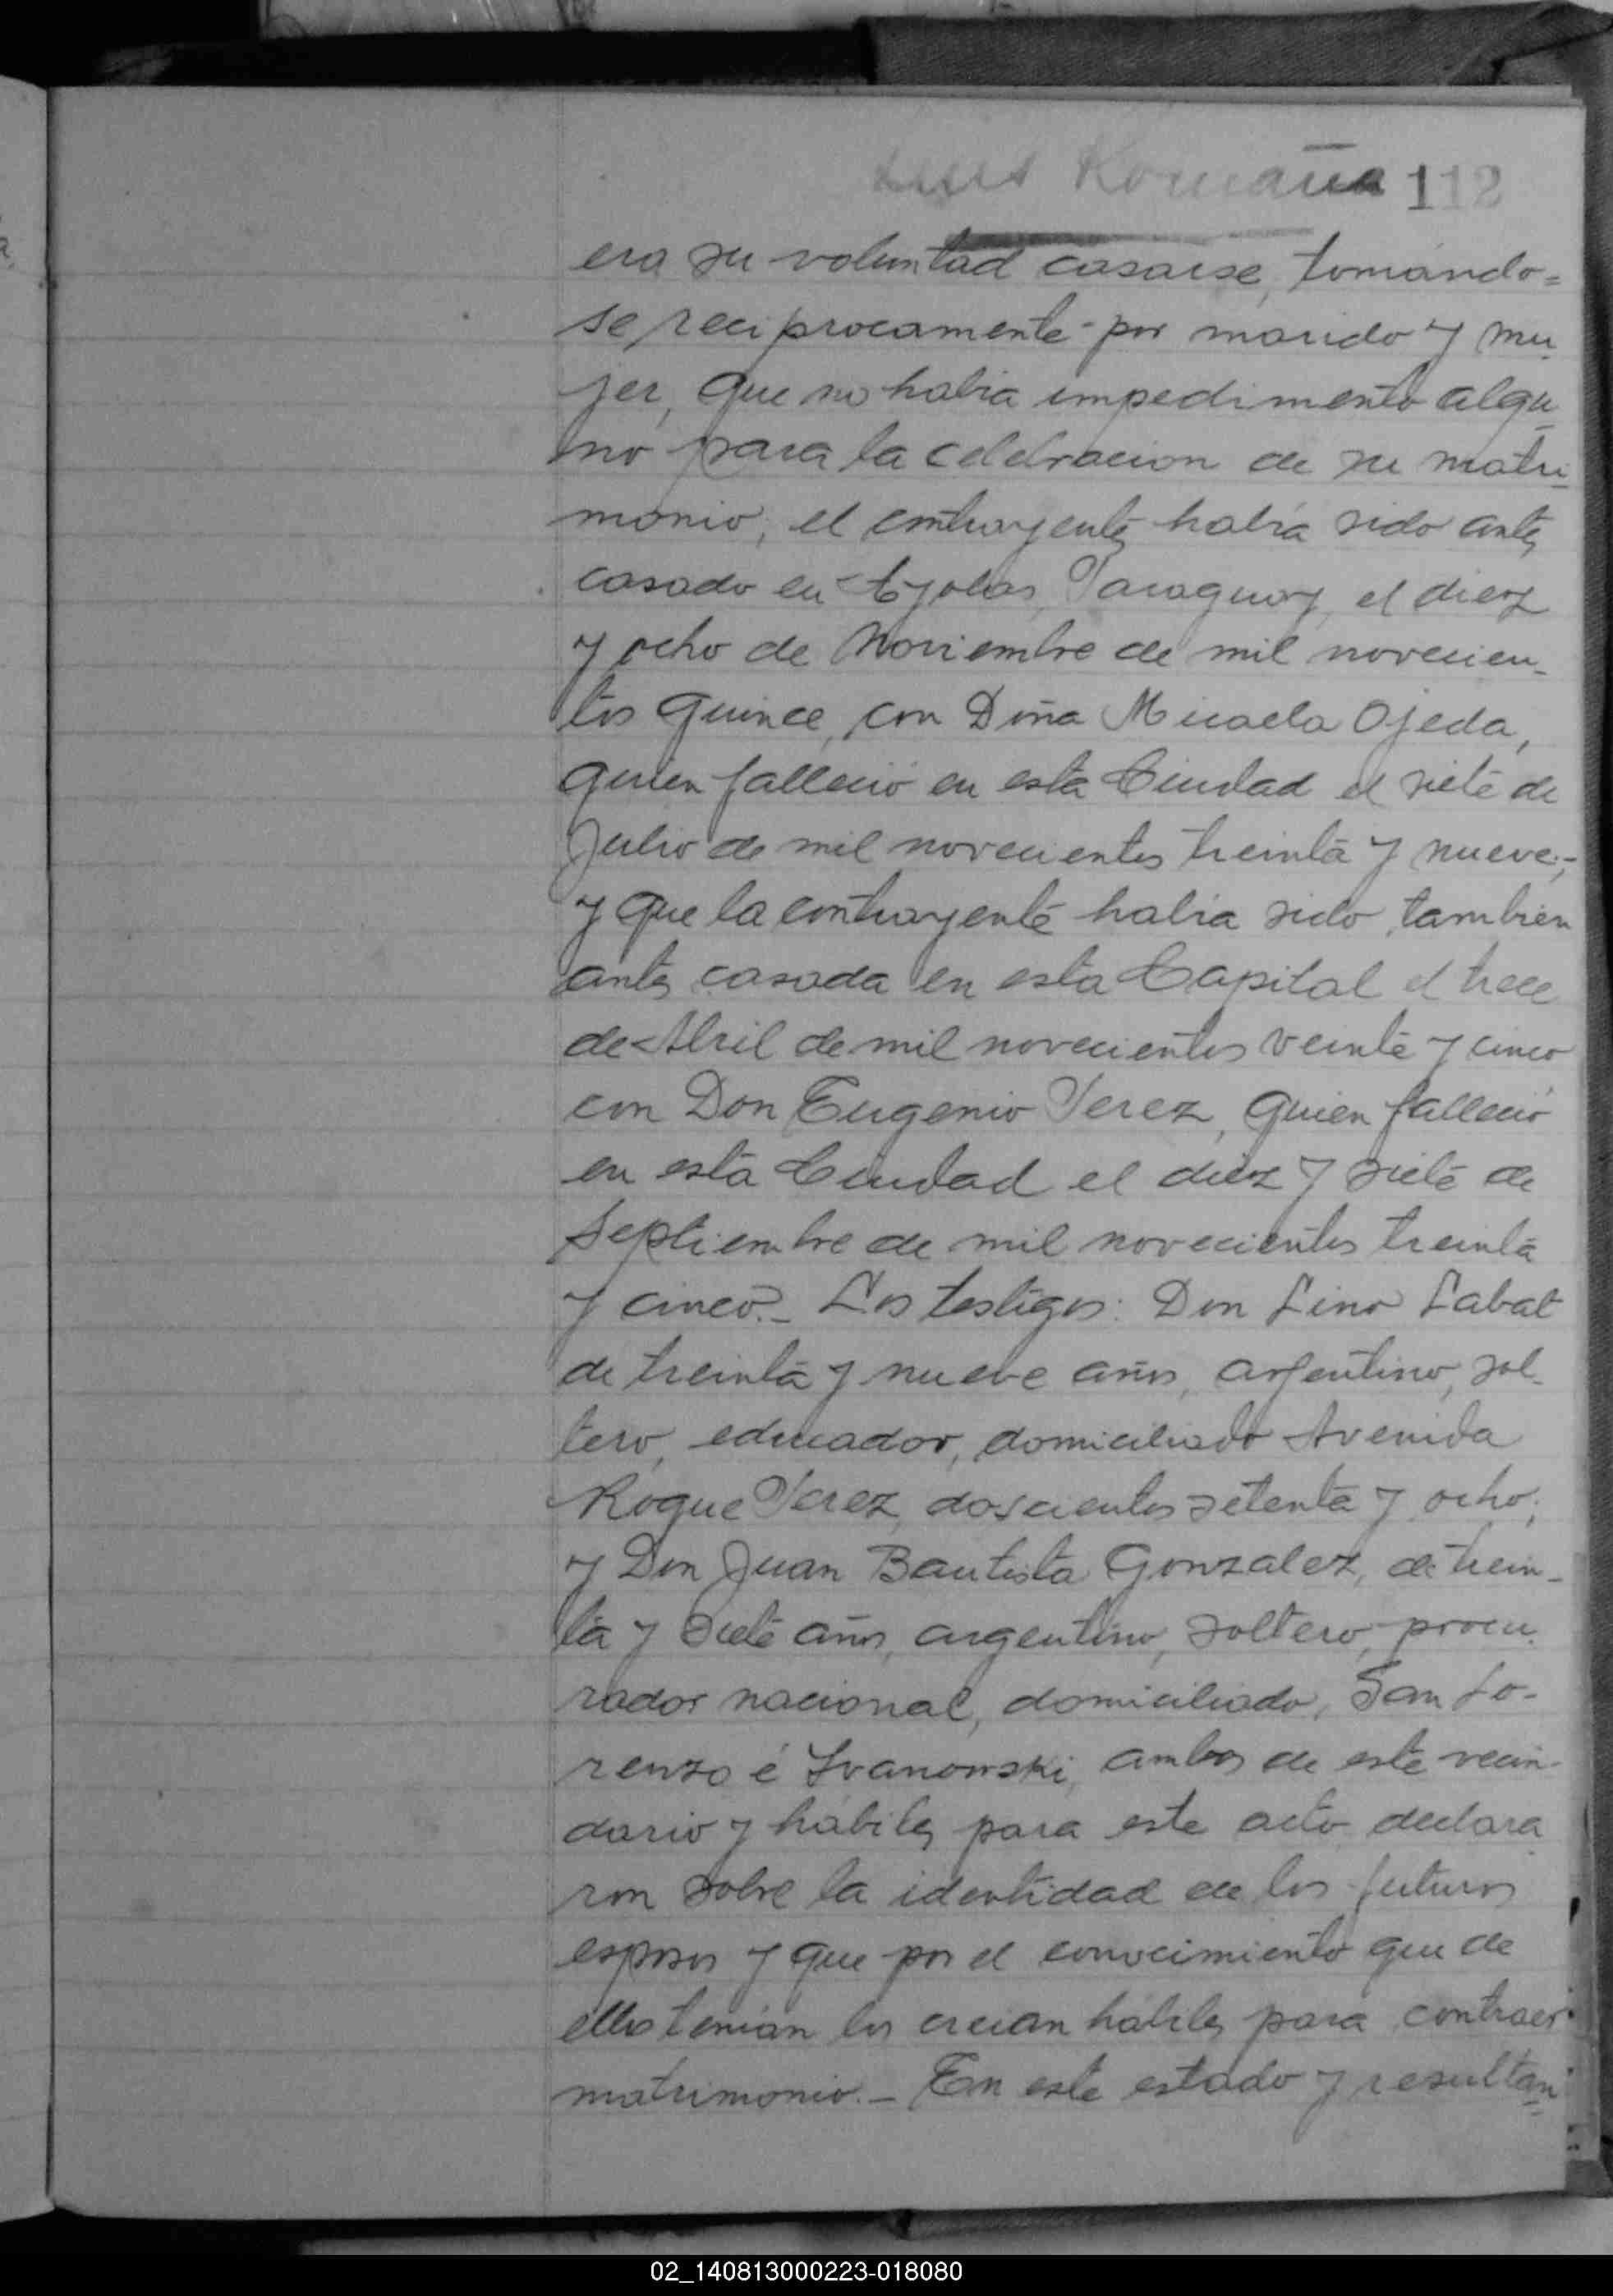 Luis Romaña 112
era su voluntad casarse, tomando=
se reciprocamente por marido y mu
jer, que no habia impedimento algu
no para la celebracion de su matri
monio, el contrayente habia sido antes
casado en Ayolas, Paraguay, el diez
y ocho de Noviembre de mil novecien-
tos quince, con Doña Micaela Ojeda,
quien falleció en esta Ciudad el siete de
Julio de mil novecientos treinta y nueve;-
y que la contrayente habia sido, tambien
antes casada en esta Capital el trece
de Abril de mil novecientos veinte y cinco
con Don Eugenio Perez, quien falleció
en esta Ciudad el diez y siete de
Septiembre de mil novecientos treinta
y cinco.- Los testigos: Don Lino Labat
de treinta y nueve años, argentino, sol-
tero, educador, domiciliado Avenida
Roque Perez, doscientos setenta y ocho;
y Don Juan Bautista Gonzalez, de trein-
ta y siete años, argentino, soltero, procu
rador nacional, domiciliado, San Lo-
renzo é Ivanowski, ambos de este vecin-
dario y hábiles para este acto declara
ron sobre la identidad de los futuros
esposos y que por el conocimiento que de
ellos tenian los creian hábiles para contraer
matrimonio.- En este estado y resultan
02_140813000223-018080